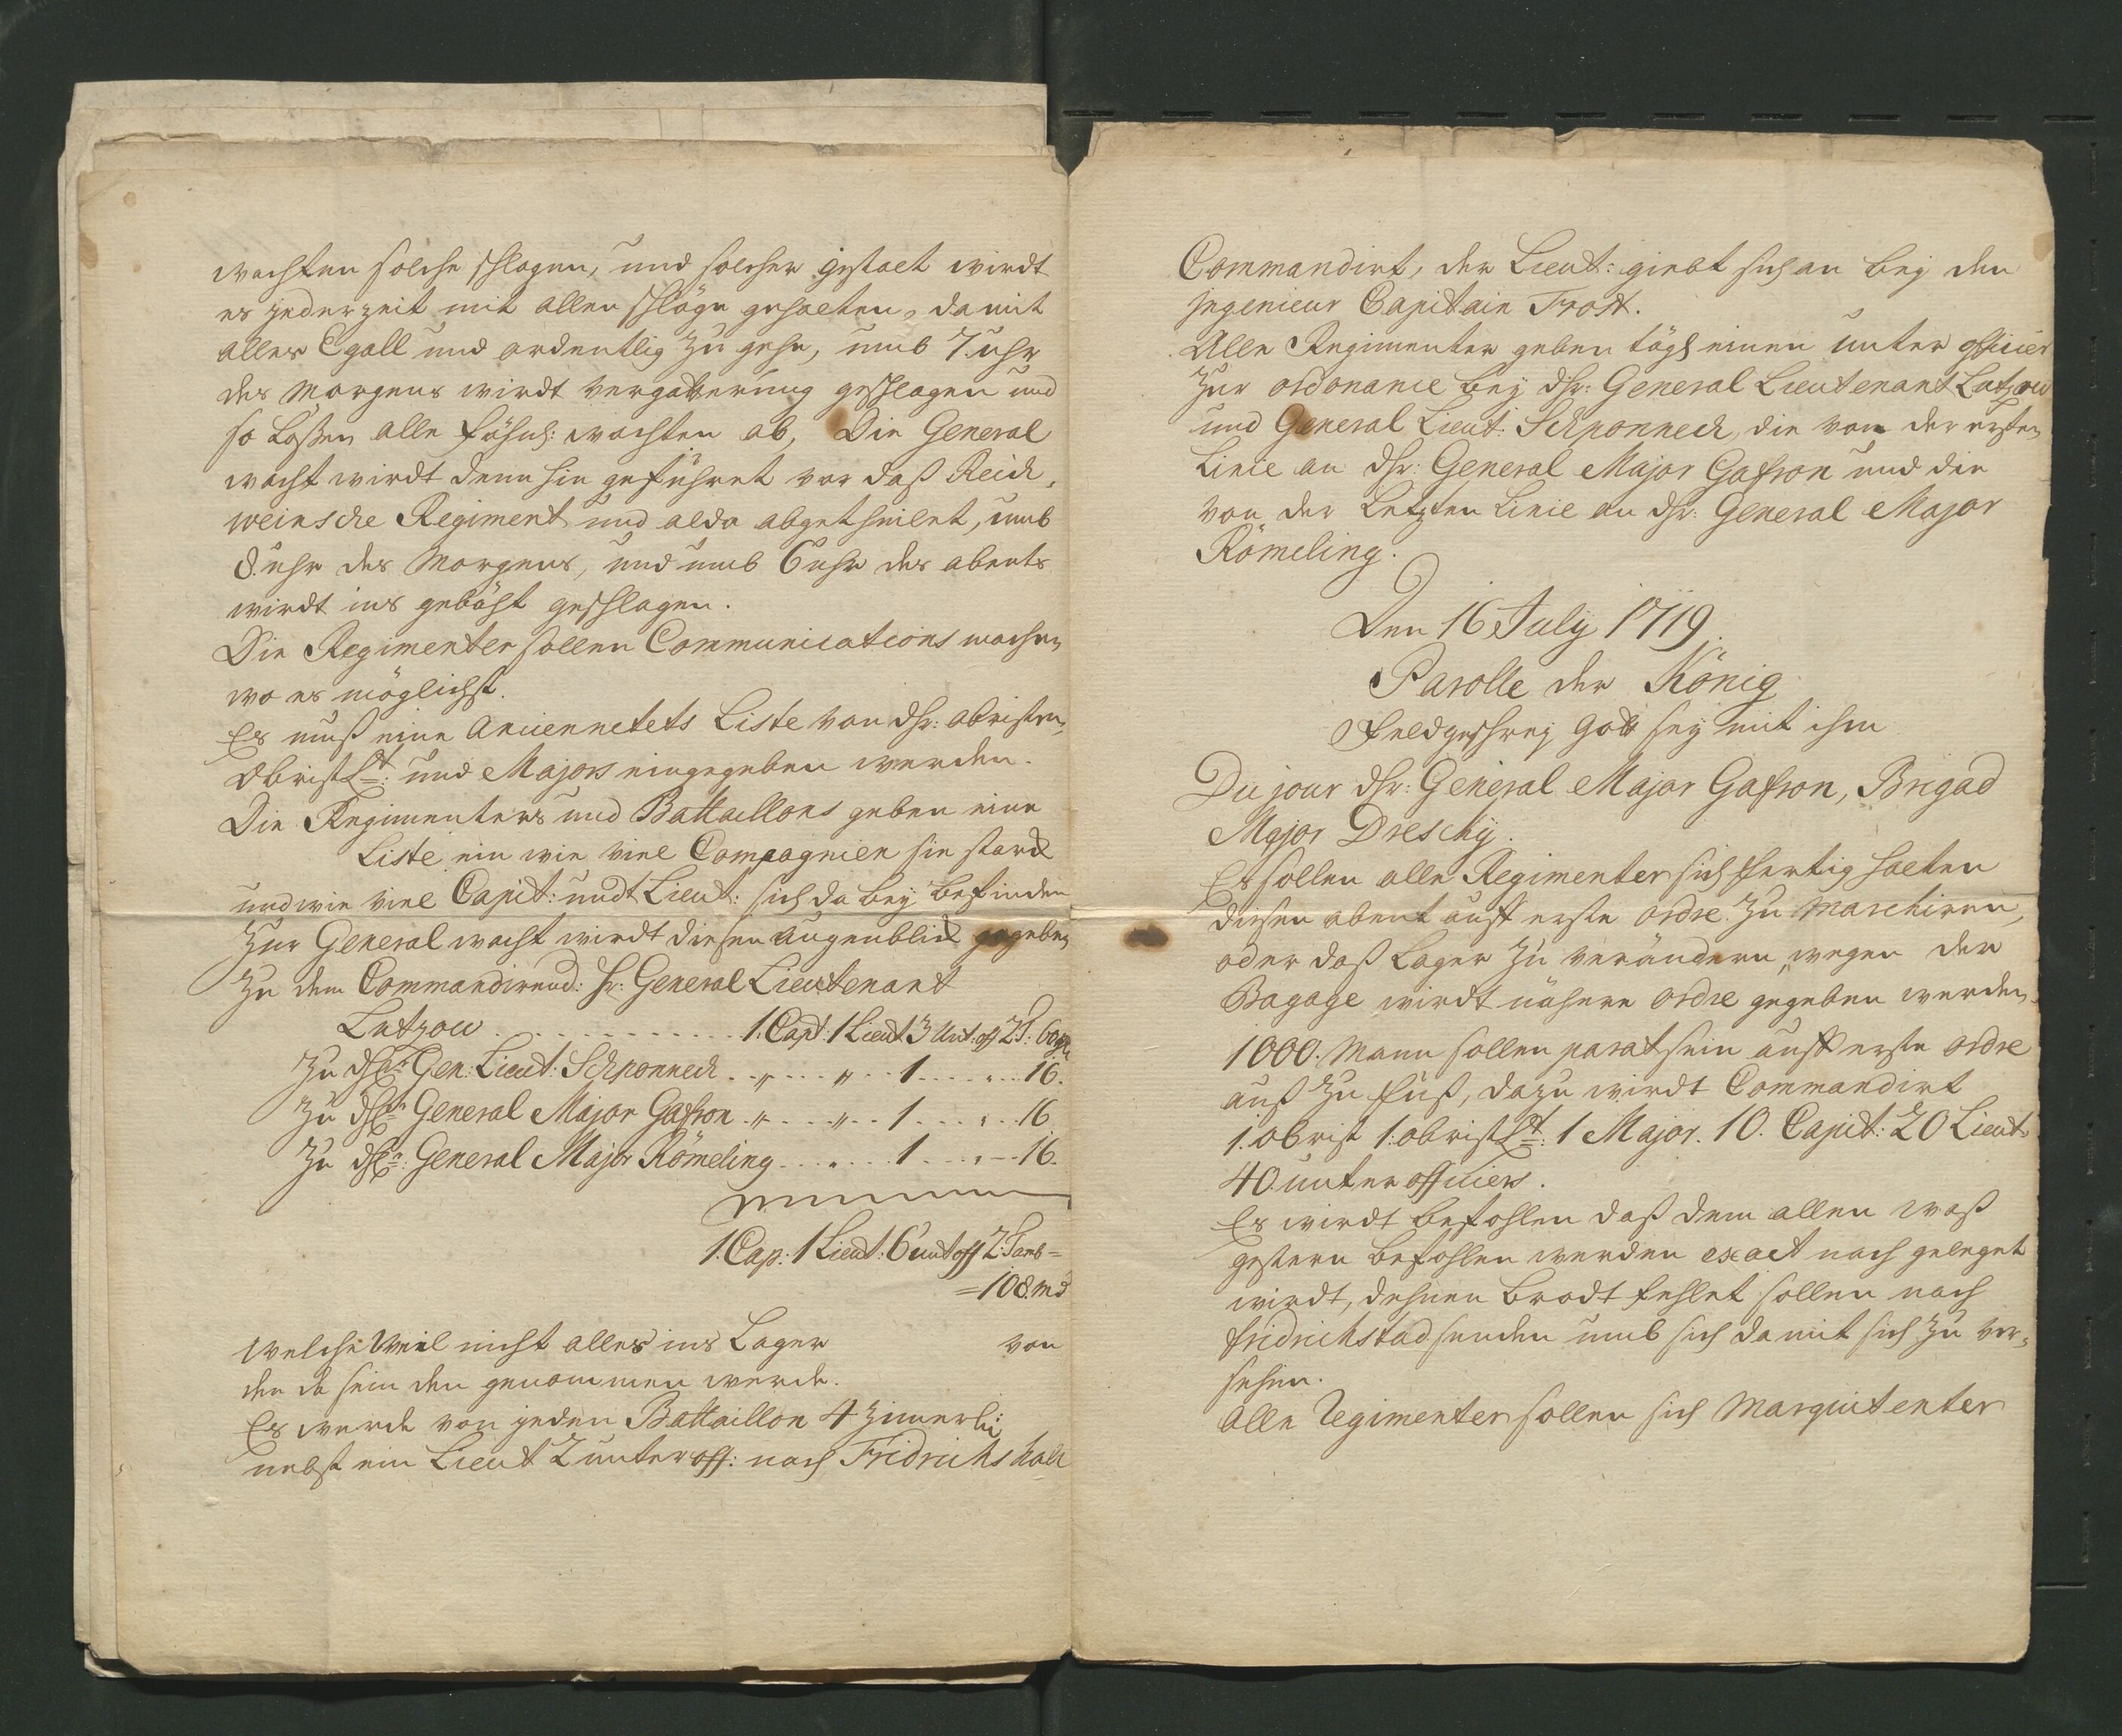 wachten solche schlagen, und solcher gestalt wirdt
es jederzeit mit allen schläge gehalten, damit
alles Egall und ordentlig zu gehe, umb 7. uhr
des Morgens wirdt vergatterung geschlagen und
so laßen alle fähnl: wachten ab, Die General
wacht wirdt denn hin geführet vor daß Reich,
weinsche Regiment und alda abgetheilet, umb
8. uhr des Morgens, und umb 6 uhr des abents
wirdt ins gebäht geschlagen.
Die Regimenter sollen Communications machen
wo es möglichst.
Es muß eine Anciennetets Liste von dhr: obristen,
Obrist Lt: und Majors eingegeben werden.
Die Regimenters und Battaillons geben eine
Liste ein wie viel Compagnien sie starck
und wie viel Capit: undt Lieut: sich da bey befinden
Zur General wacht wirdt diesen augenblick gegeben
Zu dem Commandirend: Hr: General Lieutenant
Lutzow . . . . . . . . . . . 1. Capt: 1 Lieut 3 Unt: off 2 T: 60 gm
Zu dhrn Gen: Lieut: Schponneck . . " . . . " . . 1 . . . . . . 16.
Zu dhrn General Major Gafron . " . . . " . . 1 . . . . . . 16
Zu dhrn: General Major Römeling . . . . . . 1 . . . . — 16.
1. Cap: 1 Lieut: 6 unt off 2: Tamb =
= 108. md
welche Weil nicht alles ins Lager von
den da sein den genommen werde.
Es werde von jeden Battaillon 4 Zimerli:
nebst ein Lieut 2 unter off: nach Fridrichshall
Commandirt, der Lieut: giebt sich an bey den
Ingenieur Capitain Trost.
Alle Regimenter geben tägl einen unter officier
Zur ordonance bey dhr: General Lieutenant Lutzow
und General Lieut: Schponneck, die von der ersten
Linie an dhr: General Major Gafron und die
von der Letzten Linie an dhr: General Major
Römeling.
Den 16 July 1719.
Parolle der König
Feldgeschrey Gott sey mit ihm
Du jour dhr: General Major Gafron, Brigad
Major Dreschy.
Es sollen alle Regimenter sich fertig halten
diesen abent auff erste ordre zu marchiren,
oder daß Lager zu verändern, wegen der
Bagage wirdt nähere ordre gegeben werden.
1000. Mann sollen parat sein auff erste ordre
auß zu fuß, dazu wirdt Commandirt
1. obrist 1: obrist Lt: 1 Major. 10. Capit: 20 Lieut
40 unter officiers.
Es wirdt befohlen daß dem allen waß
gestern befohlen werden exact nach geleget
wirdt, dehnen brodt fehlet sollen nach
fridrichstad senden umb sich damit sich zu ver=
sehen.
Alle Regimenter sollen sich Marquitenter